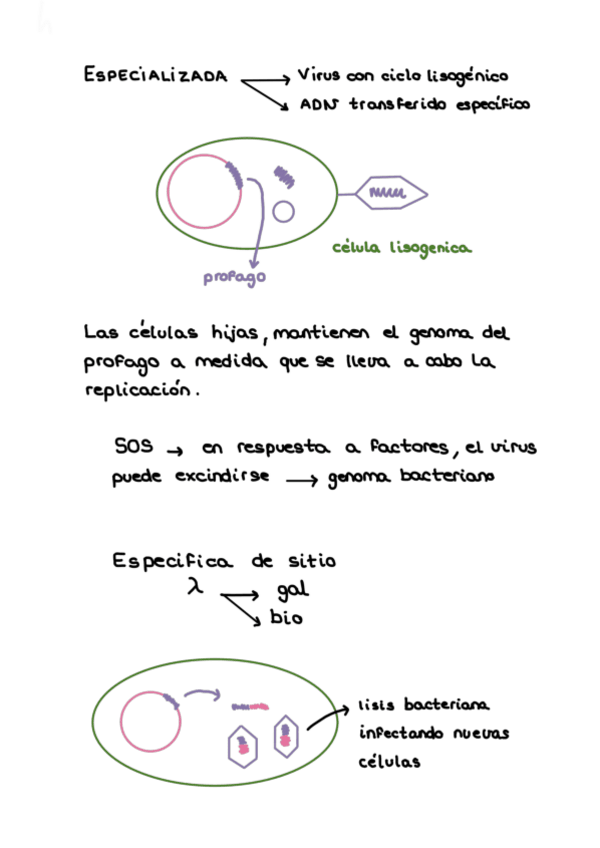 ESPECIALIZADA → Virus con ciclo lisogénico
→ ADN transferido específico
célula lisogenica
profago
Las células hijas, mantienen el genoma del
profago a medida que se lleva a cabo la
replicación.
SOS → en respuesta a factores, el virus
puede excindirse → genoma bacteriano
Especifica de sitio
λ → gal
→ bio
lisis bacteriana
infectando nuevas
células